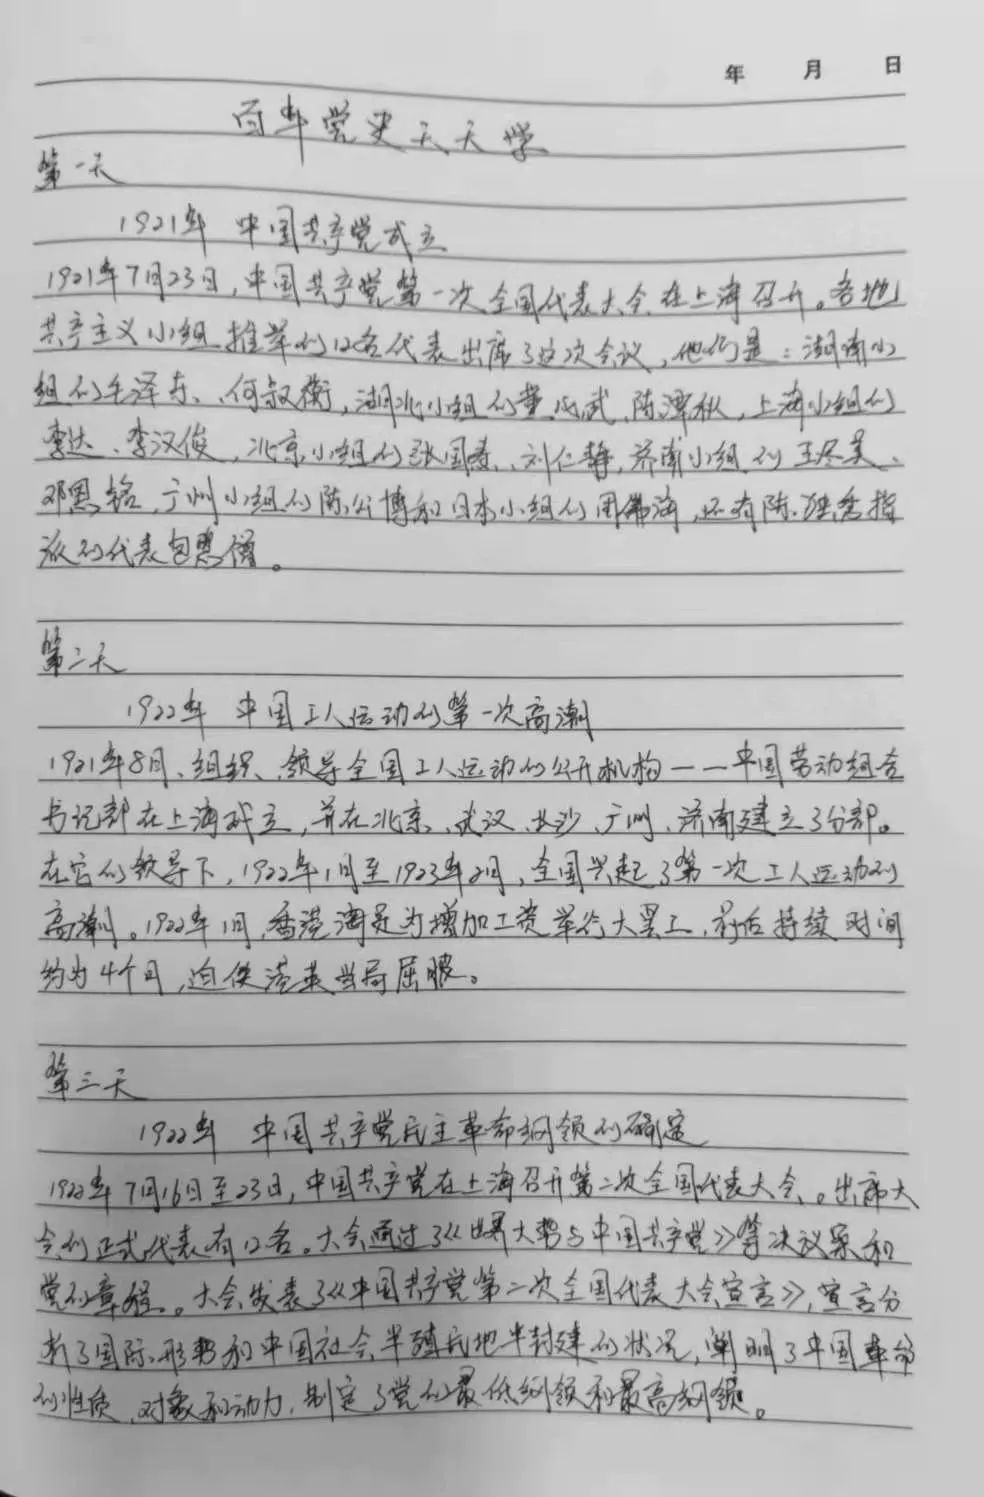 年 月 日
百年党史天天学
第一天
1921年 中国共产党成立
1921年7月23日,中国共产党第一次全国代表大会在上海召开。各地
共产主义小组推举的12名代表出席了这次会议,他们是:湖南小
组的毛泽东、何叔衡,湖北小组的董必武、陈潭秋,上海小组的
李达、李汉俊,北京小组的张国焘、刘仁静,济南小组的王尽美、
邓恩铭,广州小组的陈公博和日本小组的周佛海,还有陈独秀指
派的代表包惠僧。
第二天
1922年 中国工人运动的第一次高潮
1921年8月、组织、领导全国工人运动的公开机构——中国劳动组合
书记部在上海成立,并在北京、武汉、长沙、广州、济南建立了分部。
在它的领导下,1922年1月至1923年2月,全国兴起了第一次工人运动的
高潮。1922年1月,香港海员为增加工资举行大罢工,前后持续时间
约为4个月,迫使港英当局屈服。
第三天
1922年 中国共产党民主革命纲领的确定
1922年7月16日至23日,中国共产党在上海召开第二次全国代表大会。出席大
会的正式代表有12名。大会通过了《世界大势与中国共产党》等决议案和
党的章程。大会发表了《中国共产党第二次全国代表大会宣言》,宣言分
析了国际形势和中国社会半殖民地半封建的状况,阐明了中国革命
的性质,对象和动力,制定了党的最低纲领和最高纲领。